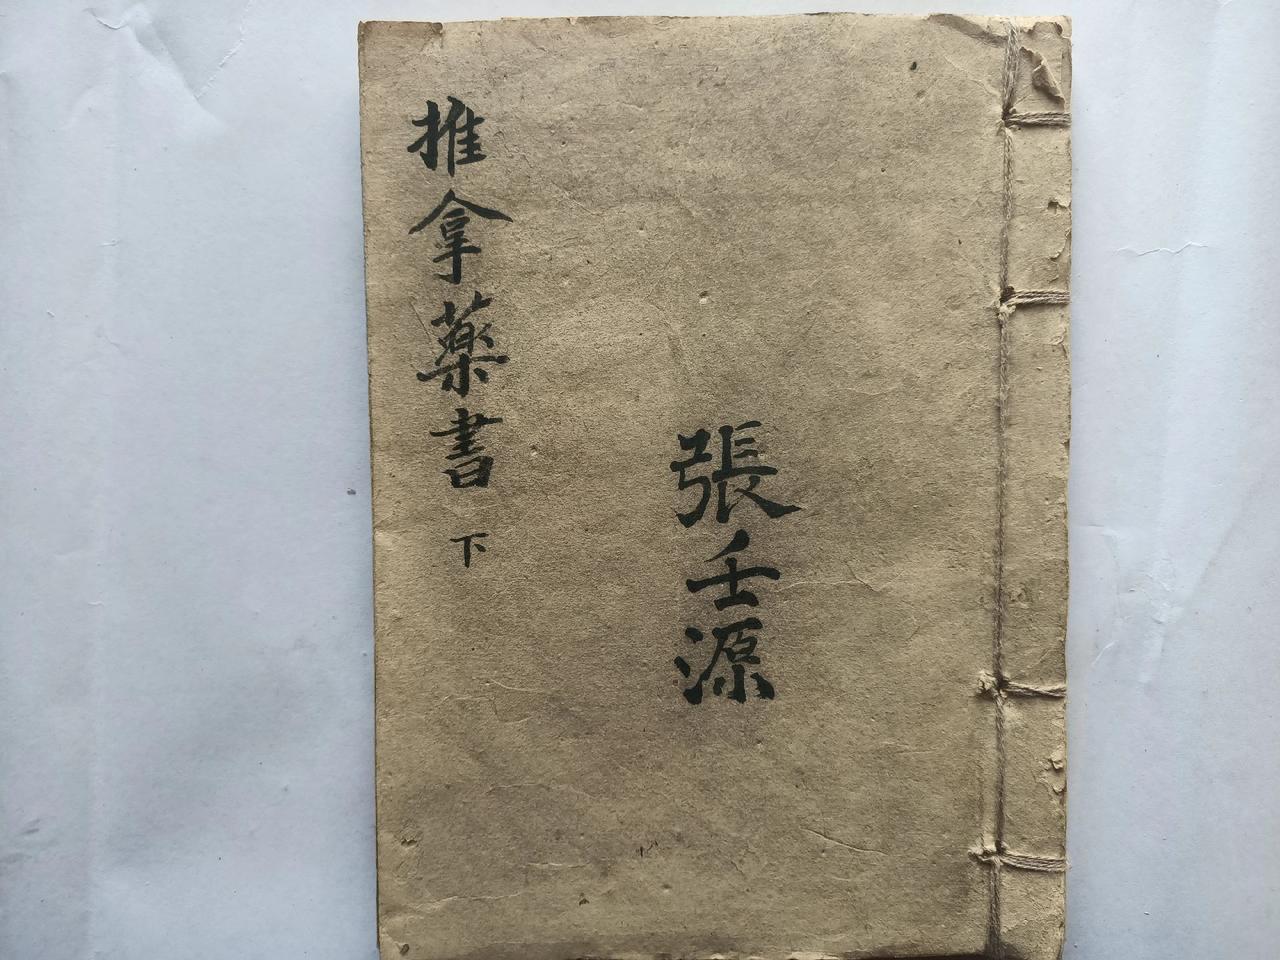 張壬源
推拿藥書 下